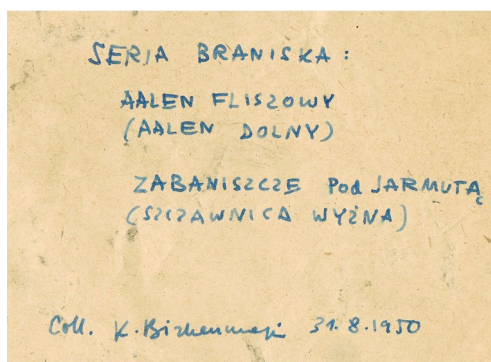 SERIA BRANISKA:
AALEN FLISZOWY
(AALEN DOLNY)
ZABANISZCZE Pod JARMUTĄ
(SZCZAWNICA WYŻNA)
Coll. K. Birkenmajer 31.8.1950